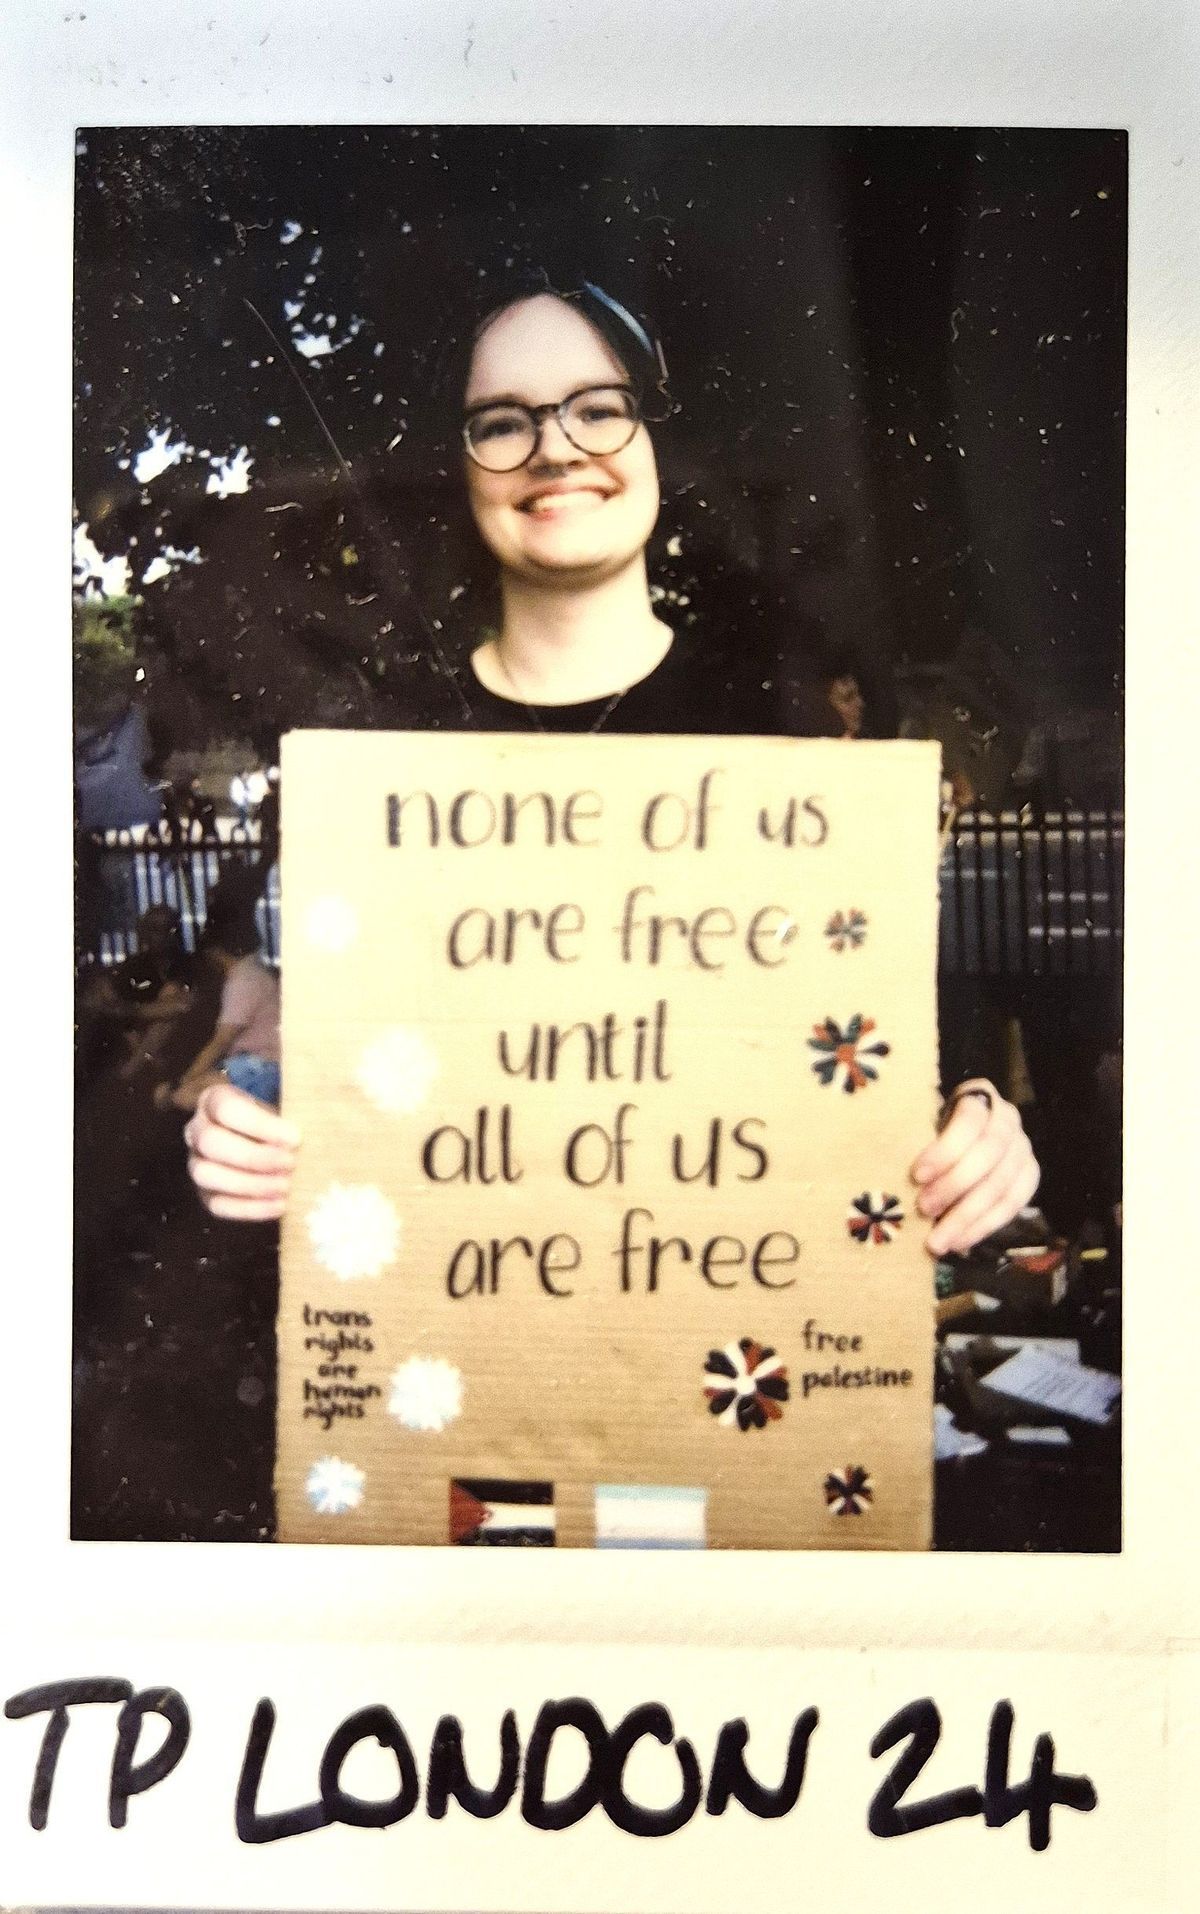 none of us
are free
until
all of us
are free
trans
rights
are
human
rights
free
palestine
TP LONDON 24